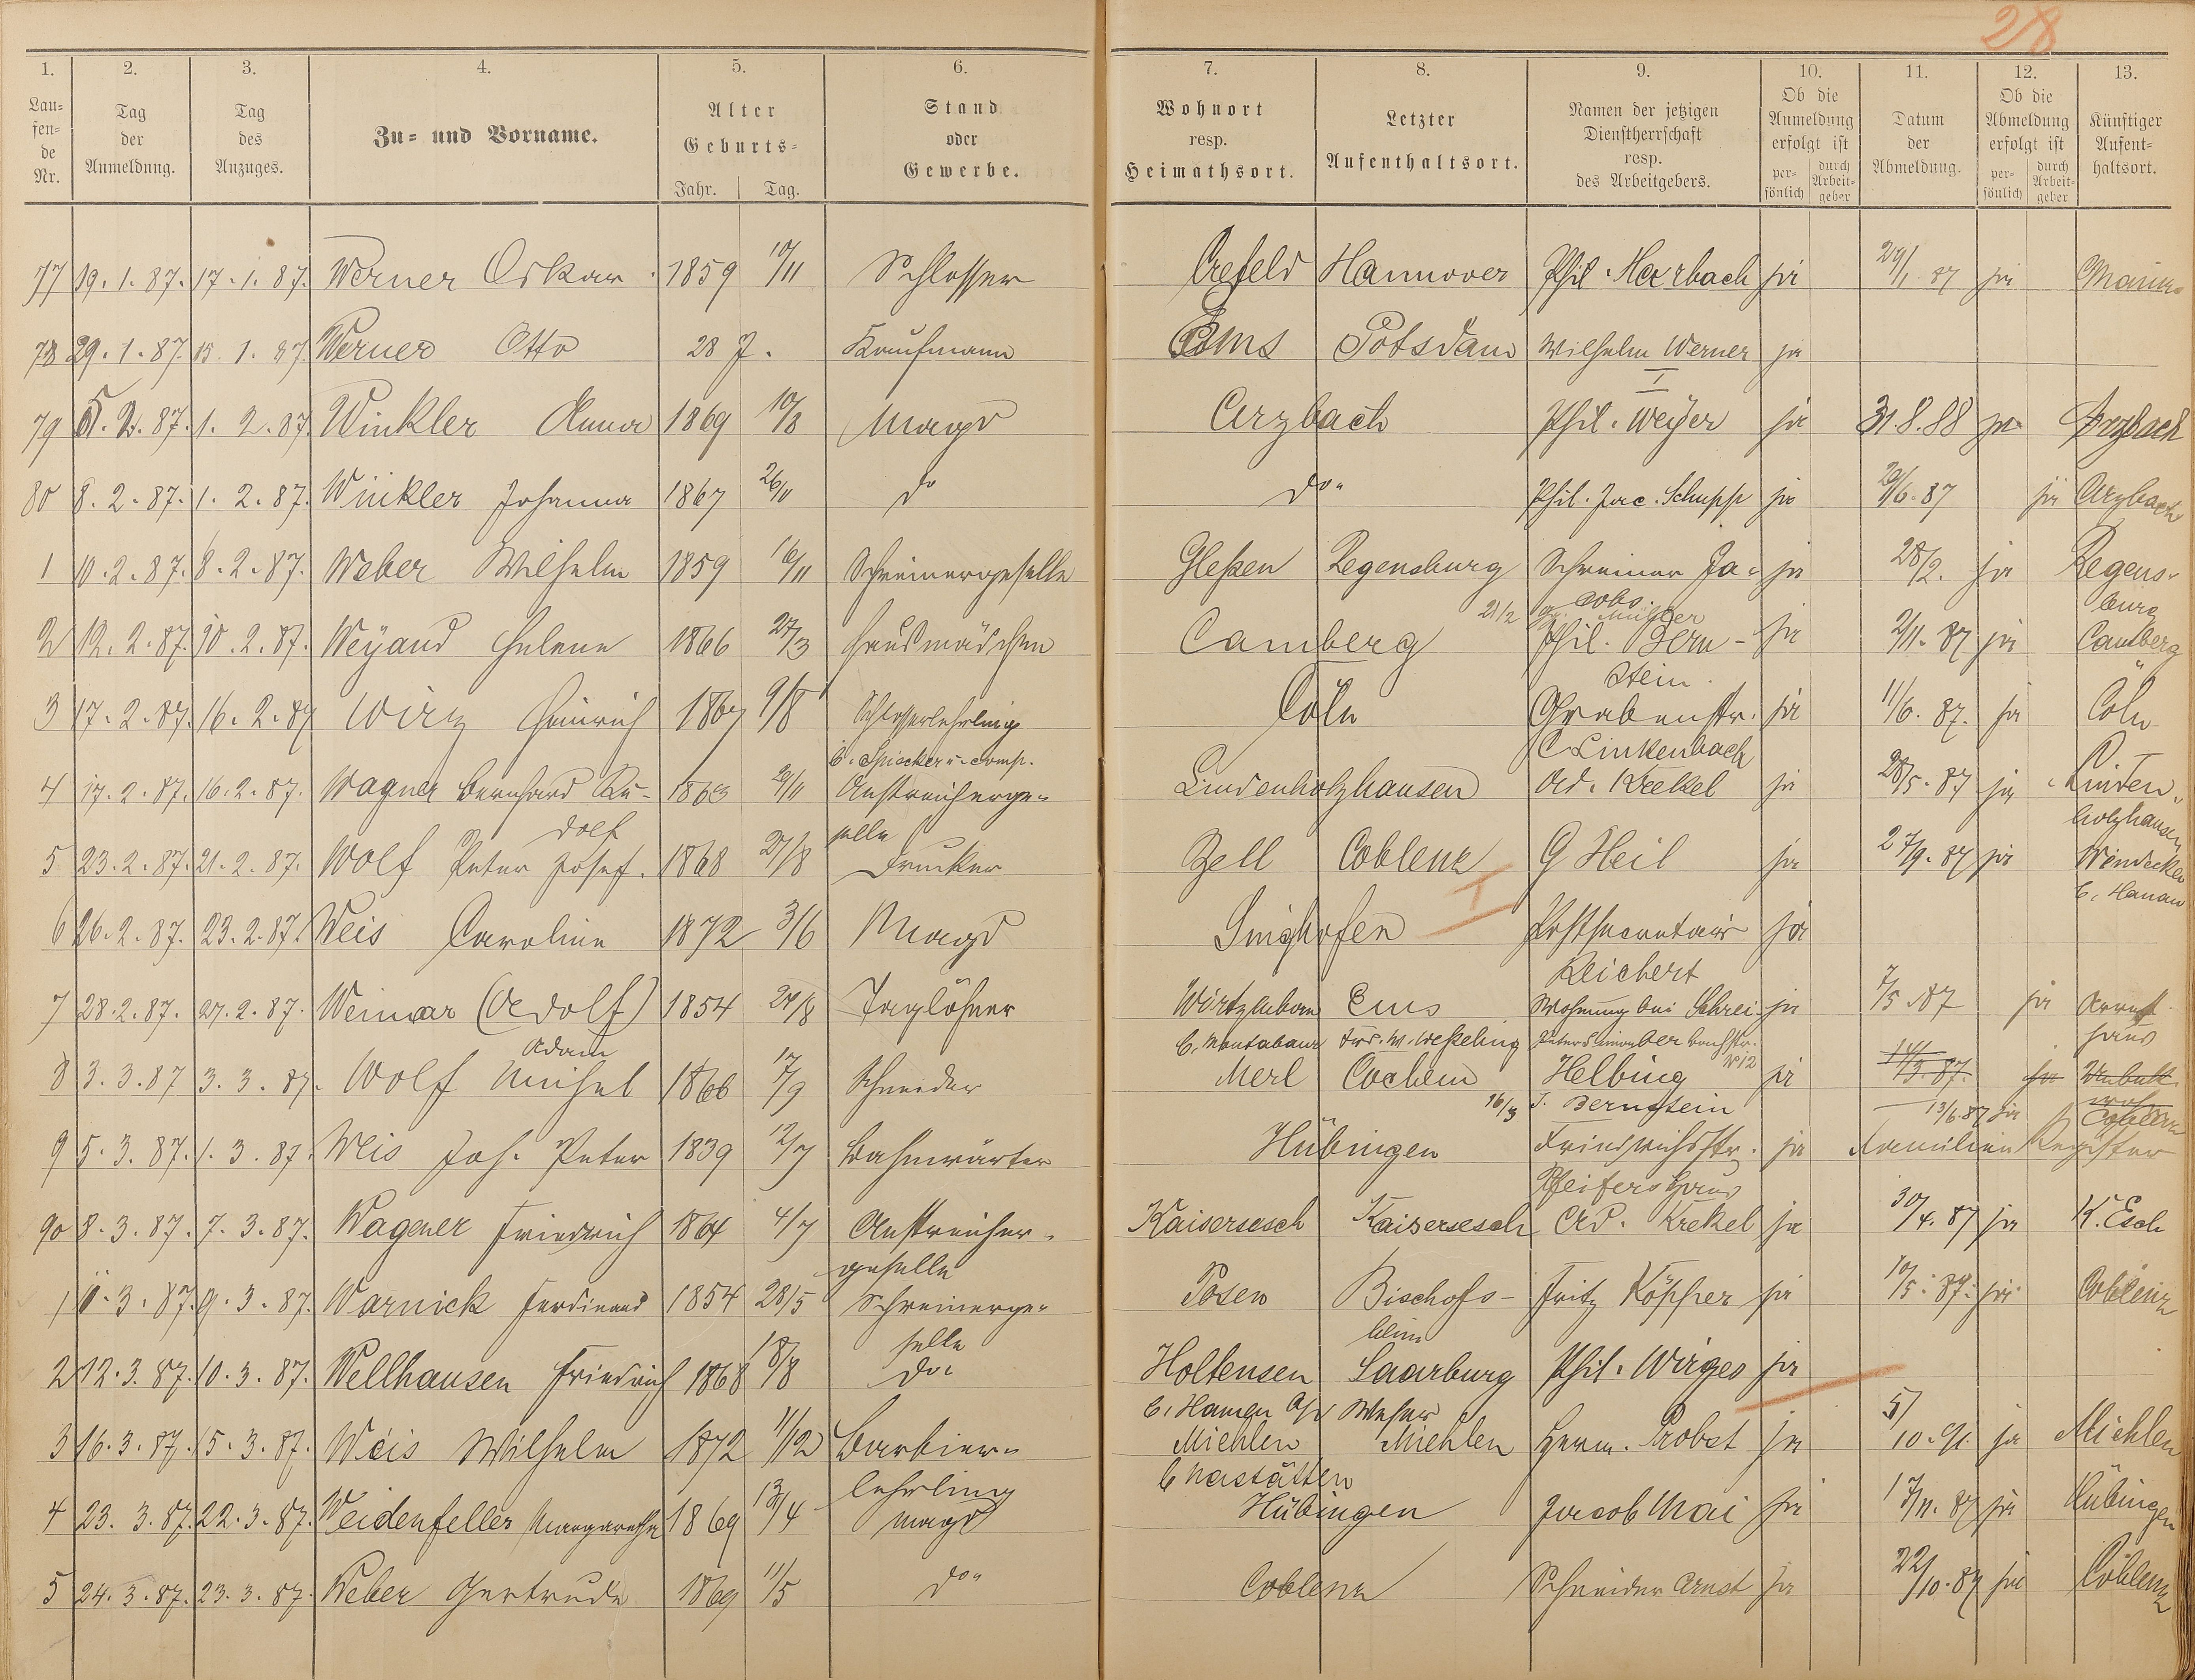 28
1. 2. 3. 4. 5. 6. 7. 8. 9. 10. 11. 12. 13.
Laufende Nr. Tag der Anmeldung. Tag des Anzuges. Zu= und Vorname. Alter Geburts= Jahr. Tag. Stand oder Gewerbe. Wohnort resp. Heimathsort. Letzter Aufenthaltsort. Namen der jetzigen Dienstherrschaft resp. des Arbeitgebers. Ob die Anmeldung erfolgt ist persönlich durch Arbeitgeber Datum der Abmeldung. Ob die Abmeldung erfolgt ist persönlich durch Arbeitgeber Künftiger Aufenthaltsort.
77 19.1.87. 17.1.87. Werner Oskar 1859 10/11 Schlosser Crefeld Hannover Phil. Herbach ja 29/1 87 ja
78 29.1.87 15.1.87. Werner Otto 28 J. Kaufmann Ems Potsdam Wilhelm Werner ja
I
79 5.2.87. 1.2.87 Winkler Anna 1869 10/8 Magd Arzbach Phil. Weyer ja 31.8.88 ja Arzbach
80 8.2.87. 1.2.87. Winkler Johanna 1867 26/11 do do Phil. Jac. Schupp ja 29/6.87 ja Arzbach
1 10.2.87. 8.2.87. Weber Wilhelm 1859 16/11 Schreinergeselle Gleßen Regensburg Schreiner Ja- ja 28/2. ja Regens-
cobs. burg
21/2 Müller
2 12.2.87. 10.2.87. Weyand Helene 1866 27/3 Hausmädchen Camberg Phil. Born- ja 2/11.87 ja Camberg
stein.
3 17.2.87. 16.2.87 Wirz Heinrich 1867 9/8 Schlosserlehrling Cöln Grabenstr. ja 11/6.87. ja Cöln
b. Spiecker u. comp. C Linkenbach
4 17.2.87. 16.2.87. Wagner Bernhard Ru- 1863 29/11 Anstreicherge- Lindenholzhausen Ad. Krekel ja 28/5.87 ja Linden-
dolf selle holzhausen
5 23.2.87. 21.2.87. Wolf Peter Josef. 1868 27/8 Drucker Zell Coblenz G Heil ja 27/9.87 ja Windecken
b. Hanau
6 26.2.87. 23.2.87. Weis Caroline 1872 3/6 Magd Singhofen Postsecretair ja
Reichert
7 28.2.87. 27.2.87. Weimar (Adolf) 1854 24/8 Taglöhner Wirtzenborn Ems Wohnung bei Schrei- ja 7/5.87 ja Arrest
b. Montabaur haus
Adam
8 3.3.87 3.3.87. Wolf Michel 1866 17/9 Schneider Merl Cochem Helbing ja 14/3.87. ja
16/3 J. Bernstein 13/6.87 ja Coblenz
9 5.3.87. 1.3.87. Weis Joh. Peter 1839 12/7 Bahnwärter Hübingen Friedrichsstr. ja Familien Register
Pfeifers Haus
90 8.3.87. 7.3.87. Wagner Friedrich 1864 4/7 Anstreicher- Kaisersesch Kaisersesch Ad. Krekel ja 30/4.87 ja K. Esch
geselle
1 11.3.87. 9.3.87. Warnick Ferdinand 1854 28/5 Schreinerge- Posen Bischofs- Fritz Köpper ja 10/5.87. ja Coblenz
selle heim
2 12.3.87. 10.3.87. Wellhausen Friedrich 1868 18/8 do. Holtensen Saarburg Phil. Wirges ja
b. Hameln a/d Weser
3 16.3.87. 15.3.87. Weis Wilhelm 1872 11/12 Barbier- Miehlen Miehlen Herm. Probst ja 5/10.91. ja Miehlen
lehrling b Nastätten
4 23.3.87. 22.3.87. Weidenfeller Margarethe 1869 13/4 Magd Hübingen Jacob Mai ja 17/11.87 ja Hübingen
5 24.3.87. 23.3.87. Weber Gertrude 1869 11/5 do Coblenz Schneider Ernst ja 22/10.87 ja Coblenz